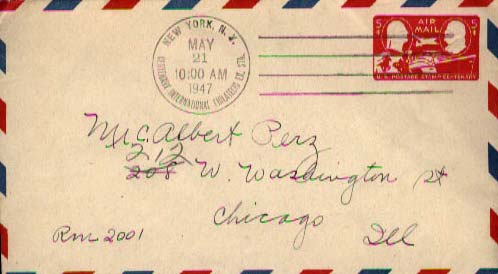 NEW YORK, N. Y.
MAY
21
10:00 AM
1947
CENTENARY INTERNATIONAL PHILATELIC EX. STA.
5 AIR MAIL 5
U.S. POSTAGE STAMP CENTENARY
Mr. Albert Perz
212
208 W. Washington St
Chicago
Ill
Rm 2001